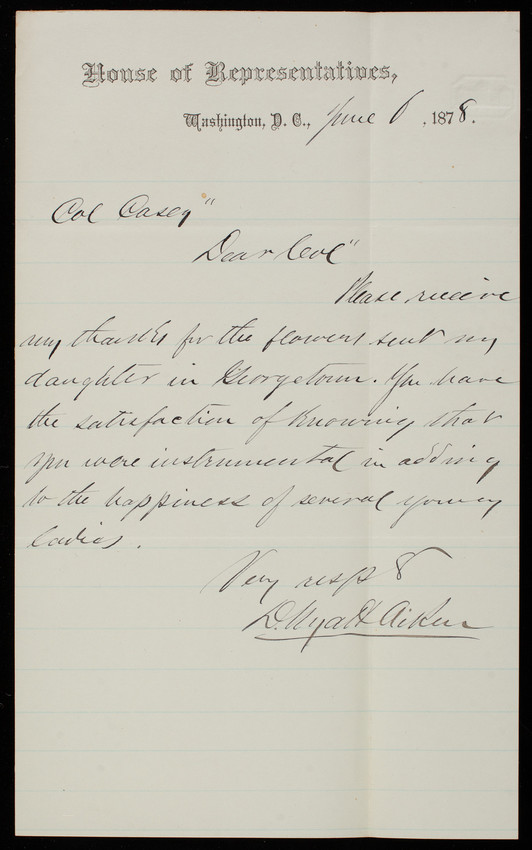 House of Representatives,
Washington, D. C., June 6, 1878.
Col Casey"
Dear Col"
Please receive
my thanks for the flowers sent my
daughter in Georgetown. You have
the satisfaction of knowing that
you were instrumental in adding
to the happiness of several young
ladies.
Very resp &
D. Wyatt Aiken